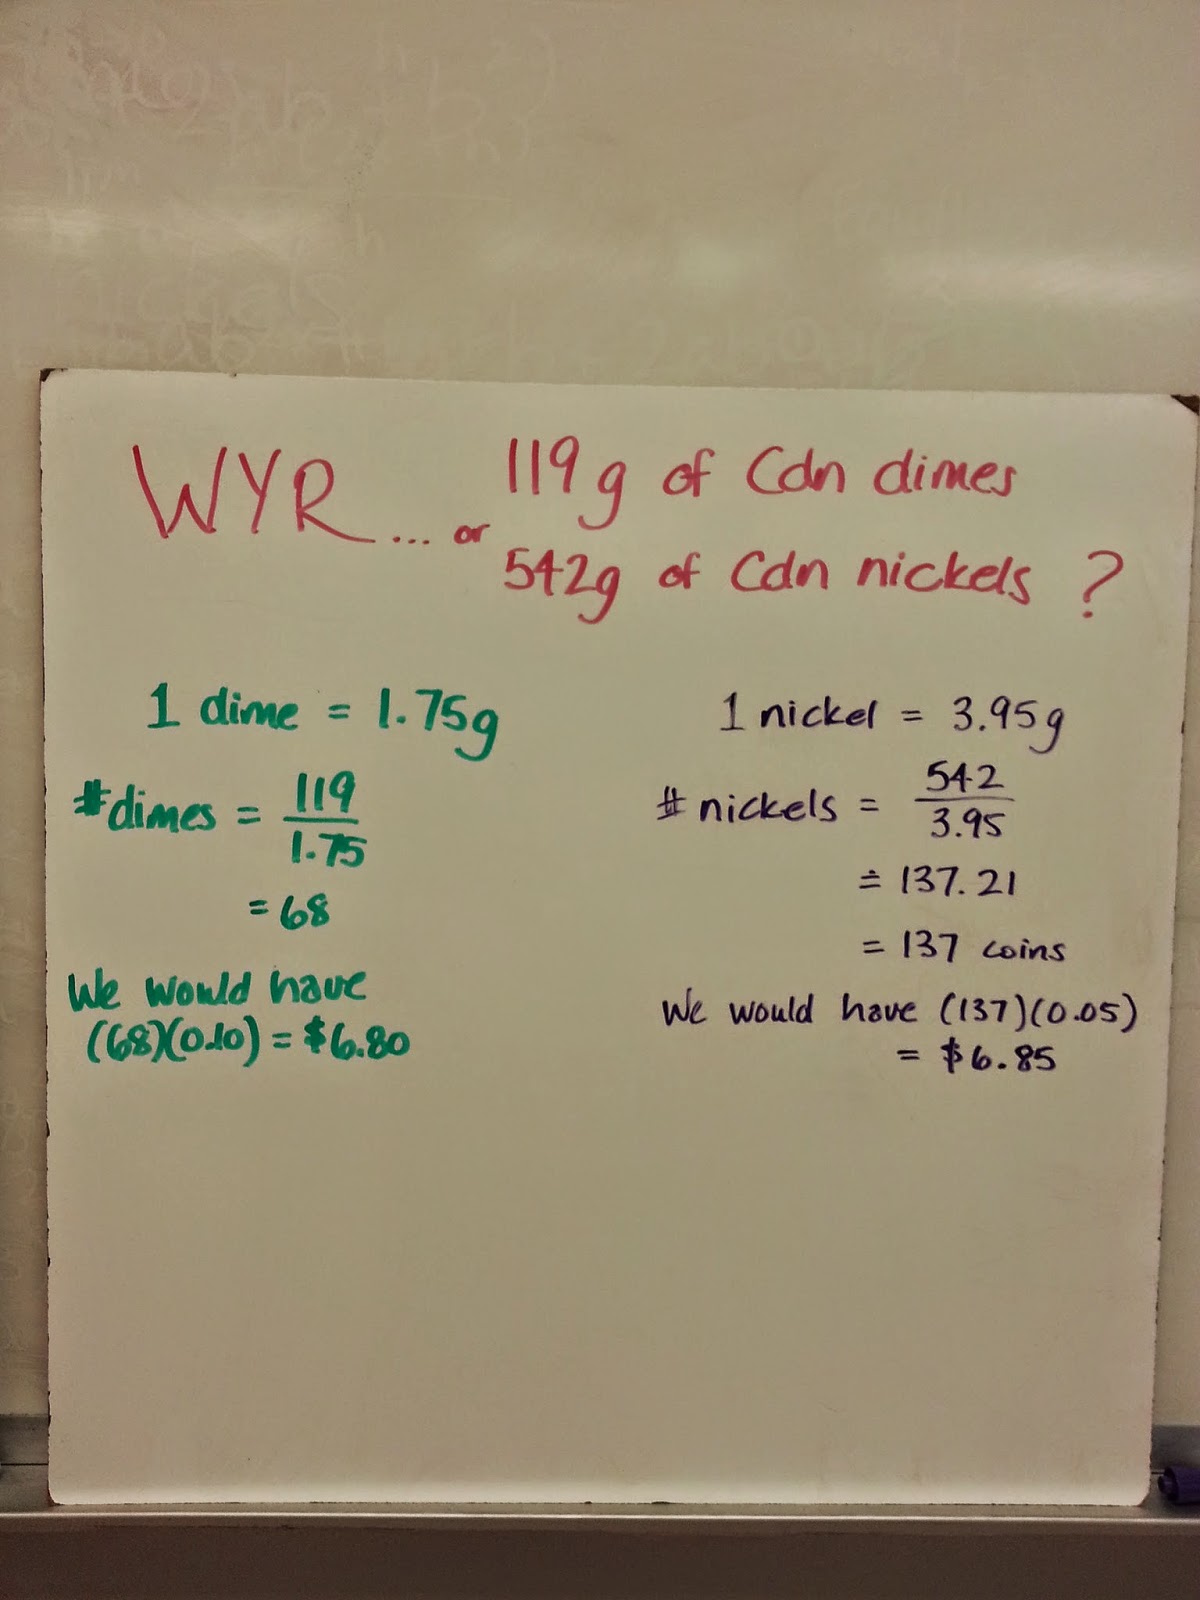 WYR... or 119g of Cdn dimes
542g of Cdn nickels ?
1 dime = 1.75g
#dimes = 119/1.75
= 68
We would have
(68)(0.10) = $6.80
1 nickel = 3.95g
# nickels = 542/3.95
≐ 137.21
= 137 coins
We would have (137)(0.05)
= $6.85